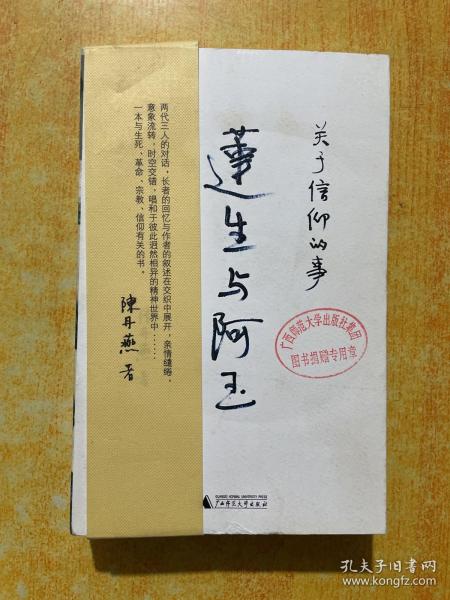 关于信仰的事
蓮生与阿玉
两代三人的对话，长者的回忆与作者的叙述在交织中展开，亲情缱绻，
意象流转，时空交错，唱和于彼此迥然相异的精神世界中……
一本与生死、革命、宗教、信仰有关的书。
陳丹燕 著
广西师范大学出版社集团
图书捐赠专用章
GUANGXI NORMAL UNIVERSITY PRESS
广西师范大学出版社
孔夫子旧书网
www.kongfz.com